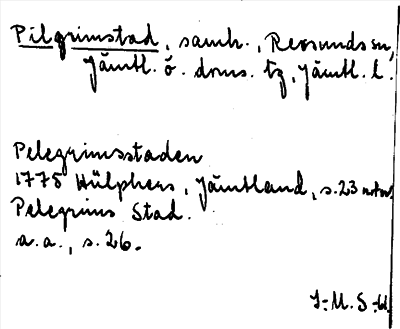 Pilgrimstad, samh., Revsunds sn,
Jämtl. ö. doms. tg, Jämtl. l.
Pelegrimsstaden
1775 Hülphers, Jämtland, s. 23 noten
Pelegrims Stad.
a.a., s. 26.